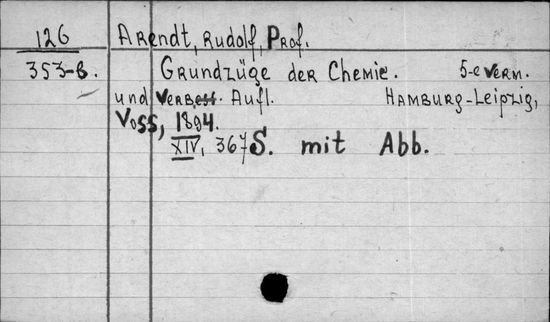 126 Arendt, Rudolf, Prof.
353-b. Grundzüge der Chemie. 5-e verm.
und verbess. Aufl. Hamburg-Leipzig,
Voss, 1894.
XIV, 367 S. mit Abb.